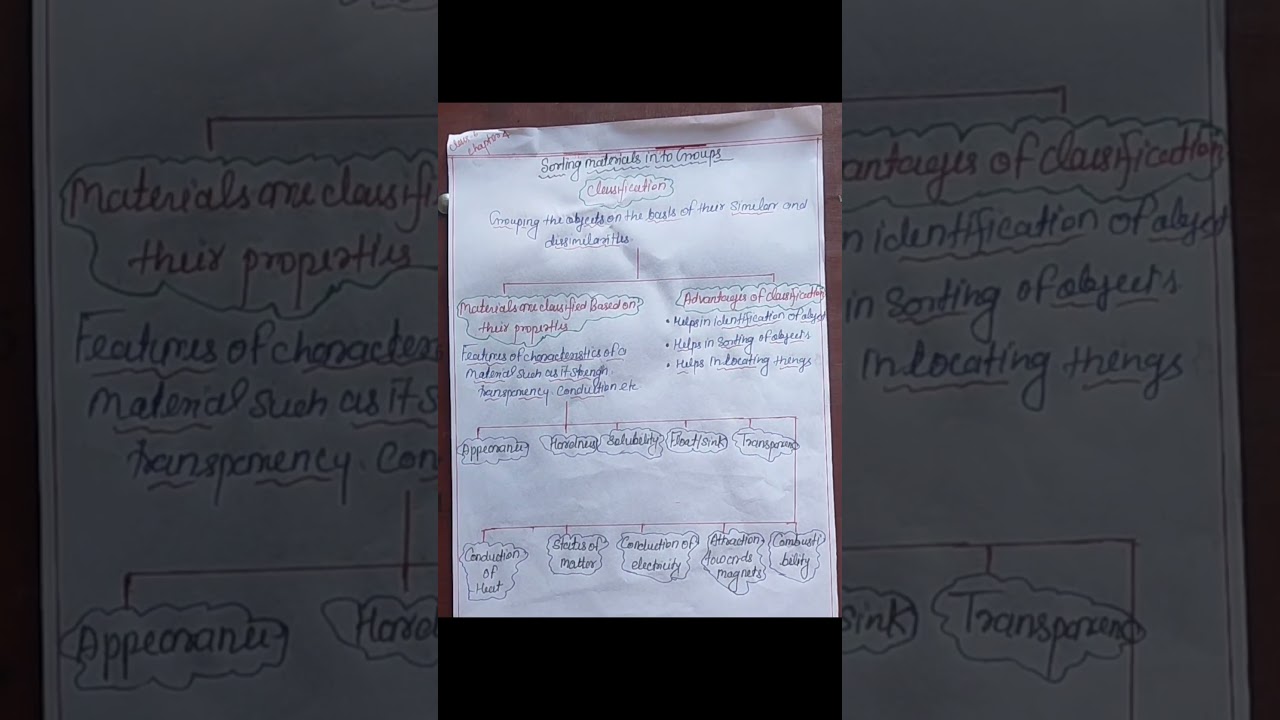 class-6
chapter-4
Sorting materials in to Groups
Classification
Grouping the objects on the basis of their similar and
dissimilarities.
Materials are classified Based on
their properties
Features of characteristics of a
material such as it strengh,
transparency. Conduction. etc
Advantages of classification
• Helps in identification of object
• Helps in sorting of objects
• Helps in locating things
Appearance
Hardness
Solubility
Float/sink
Transparend
Conduction
of
Heat
States of
matter
Conduction of
electricity
Attraction
towards
magnets
Combusti
bility